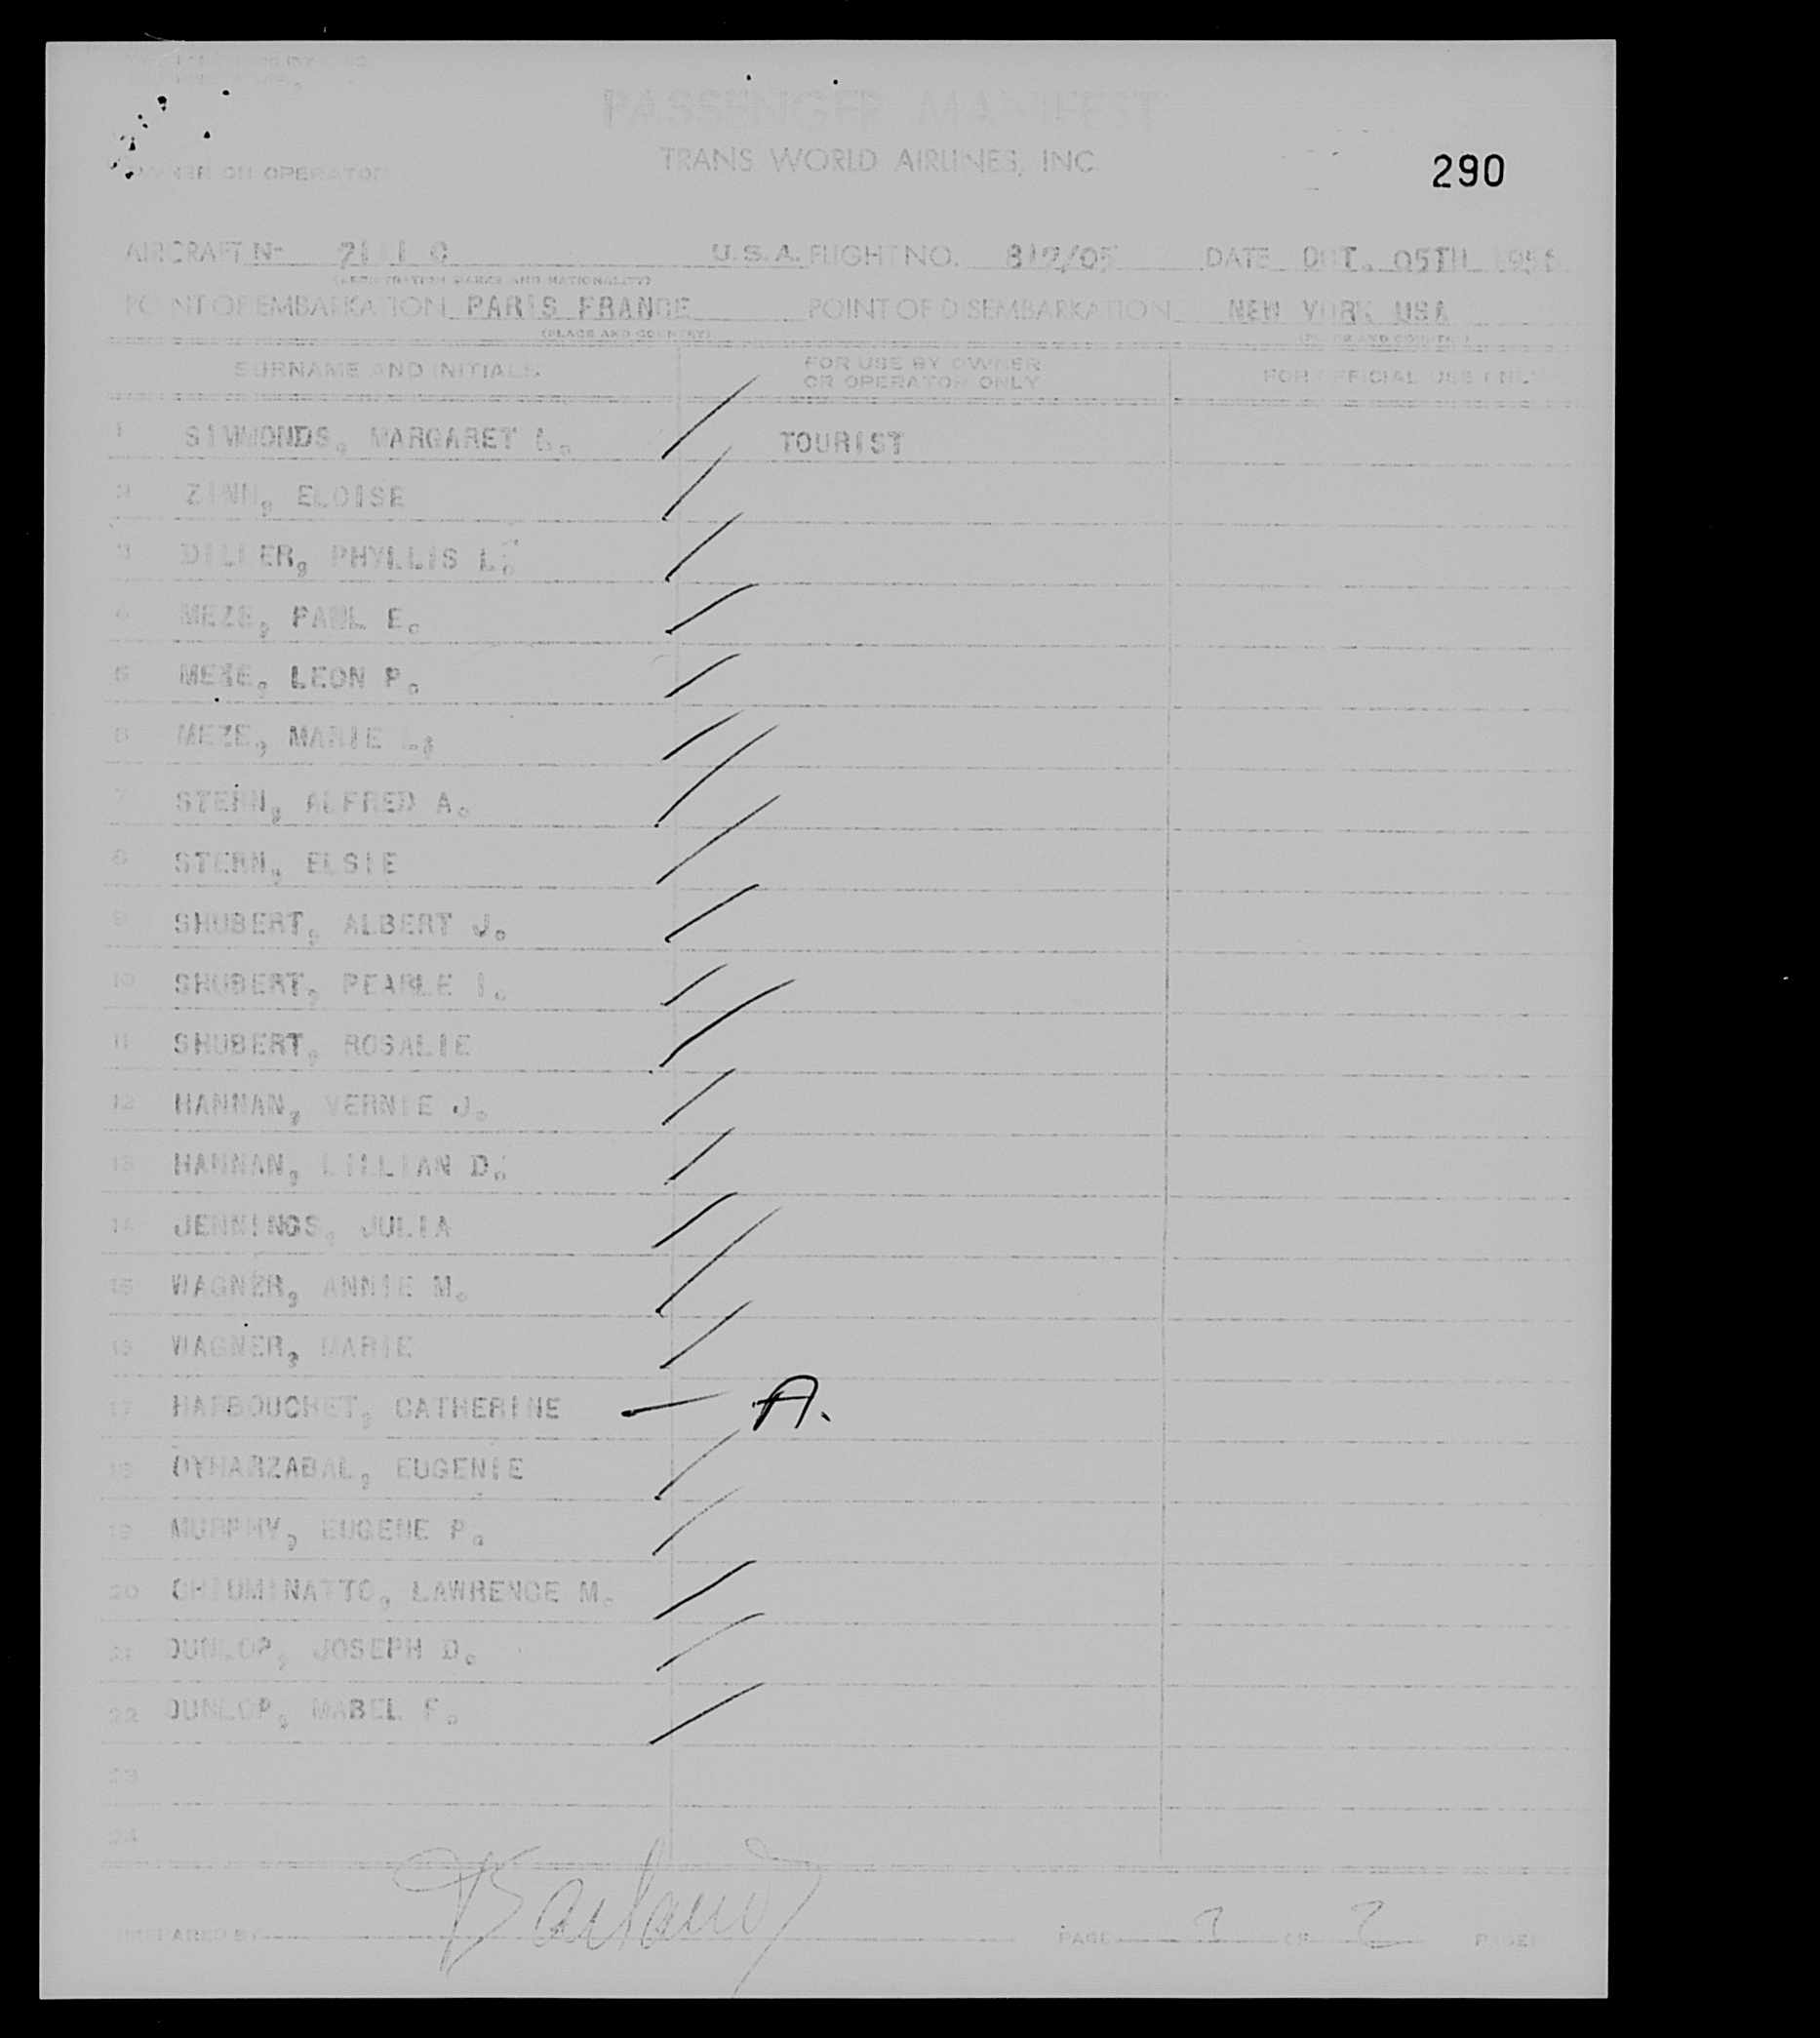 PASSENGER MANIFEST
TRANS WORLD AIRLINES, INC
290
OWNER OR OPERATOR
AIRCRAFT Nº U.S.A. FLIGHT NO. DATE OCT. 05TH
(REGISTRATION MARKS AND NATIONALITY)
POINT OF EMBARKATION PARIS FRANCE POINT OF DISEMBARKATION NEW YORK USA
(PLACE AND COUNTRY) (PLACE AND COUNTRY)
SURNAME AND INITIALS FOR USE BY OWNER OR OPERATOR ONLY FOR OFFICIAL USE ONLY
1 SIMMONDS, MARGARET TOURIST
2 ZINN, ELOISE
3 DILLER, PHYLLIS L.
4 MEZE, PAUL E.
5 MEZE, LEON P.
6 MEZE, MARIE L.
7 STERN, ALFRED A.
8 STERN, ELSIE
9 SHUBERT, ALBERT J.
10 SHUBERT, PEARLE I.
11 SHUBERT, ROSALIE
12 HANNAN, VERNIE J.
13 HANNAN, LILLIAN D.
14 JENNINGS, JULIA
15 WAGNER, ANNIE M.
16 WAGNER, MARIE
17 HARBOUCHET, CATHERINE — A.
18 OYHARZABAL, EUGENIE
19 MURPHY, EUGENE P.
20 CHIUMINATTO, LAWRENCE M.
21 DUNLOP, JOSEPH D.
22 DUNLOP, MABEL F.
23
24
PREPARED BY PAGE OF 2 PAGES